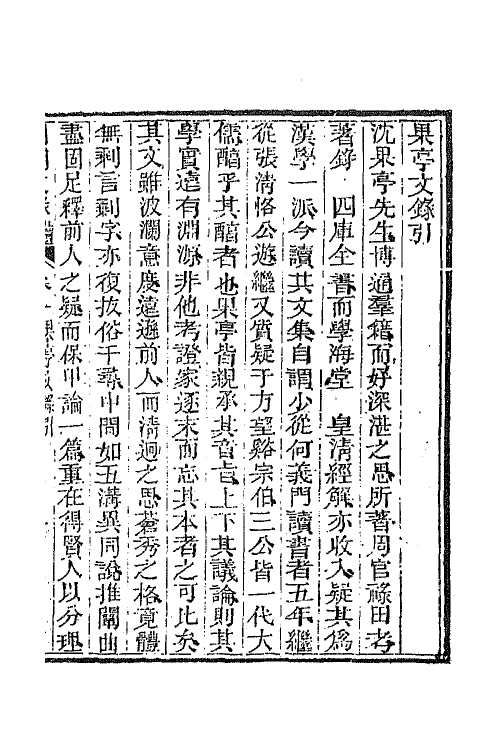 果亭文錄引
沈果亭先生博通羣籍而好深湛之思所著周官祿田考
著錄 四庫全書而學海堂 皇清經解亦收入疑其爲
漢學一派今讀其文集自謂少從何義門讀書者五年繼
從張淸恪公遊繼又質疑于方望谿宗伯三公皆一代大
儒醇乎其醇者也果亭皆親承其音旨上下其議論則其
學實遠有淵源非他考證家逐末而忘其本者之可比矣
其文雖波瀾意度遠遜前人而淸逈之思蒼秀之格竟體
無剩言剩字亦復抜俗千尋中間如五溝異同說推闡曲
盡固足釋前人之疑而保甲論一篇重在得賢人以分理